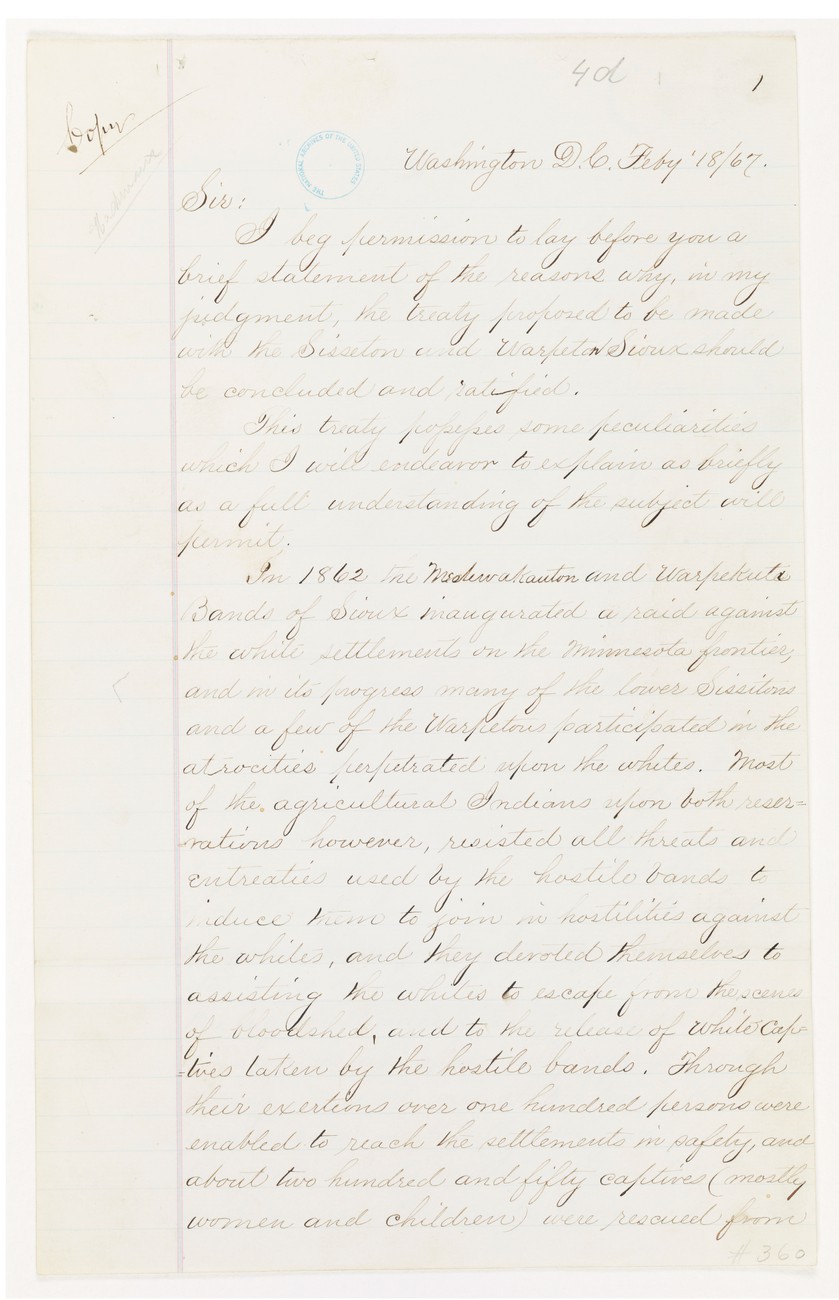 4d
1
Copy
THE NATIONAL ARCHIVES OF THE UNITED STATES
Washington D.C. Feby' 18/67.
Sir:
I beg permission to lay before you a
brief statement of the reasons why, in my
judgment, the treaty proposed to be made
with the Sisseton and Warpeton Sioux should
be concluded and ratified.
This treaty possesses some peculiarities
which I will endeavor to explain as briefly
as a full understanding of the subject will
permit.
In 1862 the Medewakanton and Warpekuta
Bands of Sioux inaugurated a raid against
the white settlements on the Minnesota frontier,
and in its progress many of the lower Sissitons
and a few of the Warpetons participated in the
atrocities perpetrated upon the whites. Most
of the agricultural Indians upon both reser=
vations however, resisted all threats and
entreaties used by the hostile bands to
induce them to join in hostilities against
the whites, and they devoted themselves to
assisting the whites to escape from the scenes
of bloodshed, and to the release of white cap=
=tives taken by the hostile bands. Through
their exertions over one hundred persons were
enabled to reach the settlements in safety, and
about two hundred and fifty captives (mostly
women and children) were rescued from
# 360